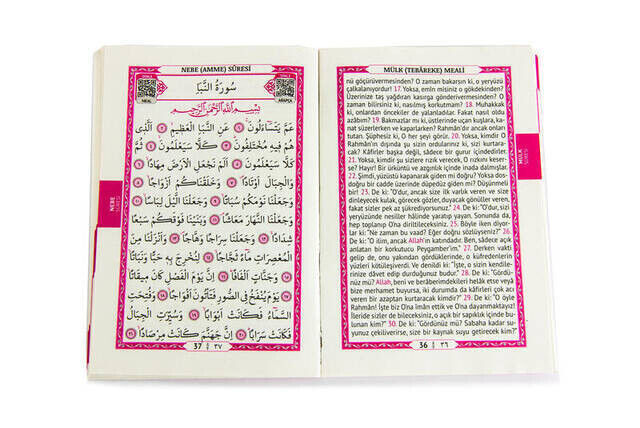 MÜLK (TEBÂREKE) MEALİ
nü göçürüvermesinden? O zaman bakarsın ki, o yeryüzü
çalkalanıyordur! 17. Yoksa, emin misiniz o gökdekinden?
Üzerinize taş yağdıran kasırga göndermesinden? O
zaman bilirsiniz ki, nasılmış korkutmam? 18. Muhakkak
ki, onlardan öncekiler de yalanladılar. Fakat nasıl oldu
azâbım? 19. Bakmazlar mı ki, üstlerinde uçan kuşlara, kanat
süzerlerken ve kaparlarken? Rahman'dır ancak onları
tutan. Şüphesiz ki, O her şeyi görür. 20. Yoksa, kimdir O
Rahmân'ın dışında şu sizin ordularınız ki, sizi kurtaracak?
Kâfirler başka değil, sâdece bir gurur içindedirler.
21. Yoksa, kimdir şu sizlere rızık verecek, O rızkını keserse?
Hayır! Bir ürküntü ve azgınlık içinde inada dalmışlar.
22. Şimdi, yüzüstü kapanarak giden mi doğru? Yoksa dosdoğru
bir cadde üzerinde düpedüz giden mi? Düşünmeli
bir! 23. De ki: "O'dur, ancak size ilk varlık veren ve size
dinleyecek kulak, görecek gözler, duyacak gönüller veren,
fakat sizler pek az şükrediyorsunuz." 24. De ki: "O'dur, sizi
yeryüzünde nesiller hâlinde yaratıp yayan. Sonunda da,
hep toplanıp O'na dirileceksiniz. 25. Böyle iken diyorlar
ki: "Ne zaman bu vaad? Eğer doğru sözlüyseniz?" 26.
De ki: "O ilim, ancak Allah'ın katındadır. Ben, sâdece açık
anlatan bir korkutucu Peygamber'im." 27. Derken vakti
gelip de, onu yakından gördüklerinde, o küfredenlerin
yüzleri kötüleşiverdi. Ve denildi ki: "İşte, o sizin kendilerinize
dâvet edip durduğunuz budur." 28. De ki: "Gördünüz
mü? Allah, beni ve berâberimdekileri helâk etse veyâ
bize merhamet buyursa, iki durumda da kâfirleri çok acı
veren bir azaptan kurtaracak kimdir?" 29. De ki: "O öyle
Rahmân! İşte biz O'na îmân ettik ve O'na dayanmaktayız!
İleride sizler de bileceksiniz, o açık bir sapıklık içinde bulunan
kim?" 30. De ki: "Gördünüz mü? Sabaha kadar suyunuz
çekiliverirse, size bir kaynak suyu getirecek kim?"
36 ٣٦
MÜLK
SÛRESİ
NEBE (AMME) SÛRESİ
سُورَةُ النَّبَأِ
MEAL
ARAPÇA
بِسْمِ اللّٰهِ الرَّحْمٰنِ الرَّحِيمِ
عَمَّ يَتَسَاءَلُونَ ١ عَنِ النَّبَأِ الْعَظِيمِ ٢ اَلَّذِى
هُمْ فِيهِ مُخْتَلِفُونَ ٣ كَلَّا سَيَعْلَمُونَ ٤ ثُمَّ
كَلَّا سَيَعْلَمُونَ ٥ اَلَمْ نَجْعَلِ الْاَرْضَ مِهَادًا ٦
وَالْجِبَالَ اَوْتَادًا ٧ وَخَلَقْنَاكُمْ اَزْوَاجًا ٨
وَجَعَلْنَا نَوْمَكُمْ سُبَاتًا ٩ وَجَعَلْنَا الَّيْلَ لِبَاسًا ١٠
وَجَعَلْنَا النَّهَارَ مَعَاشًا ١١ وَبَنَيْنَا فَوْقَكُمْ سَبْعًا
شِدَادًا ١٢ وَجَعَلْنَا سِرَاجًا وَهَّاجًا ١٣ وَاَنْزَلْنَا مِنَ
الْمُعْصِرَاتِ مَاءً ثَجَّاجًا ١٤ لِنُخْرِجَ بِهِ حَبًّا وَنَبَاتًا
١٥ وَجَنَّاتٍ اَلْفَافًا ١٦ اِنَّ يَوْمَ الْفَصْلِ كَانَ مِيقَاتًا
١٧ يَوْمَ يُنْفَخُ فِى الصُّورِ فَتَأْتُونَ اَفْوَاجًا ١٨ وَفُتِحَتِ
السَّمَاءُ فَكَانَتْ اَبْوَابًا ١٩ وَسُيِّرَتِ الْجِبَالُ
فَكَانَتْ سَرَابًا ٢٠ اِنَّ جَهَنَّمَ كَانَتْ مِرْصَادًا ٢١
37 ٣٧
NEBE
SÛRESİ